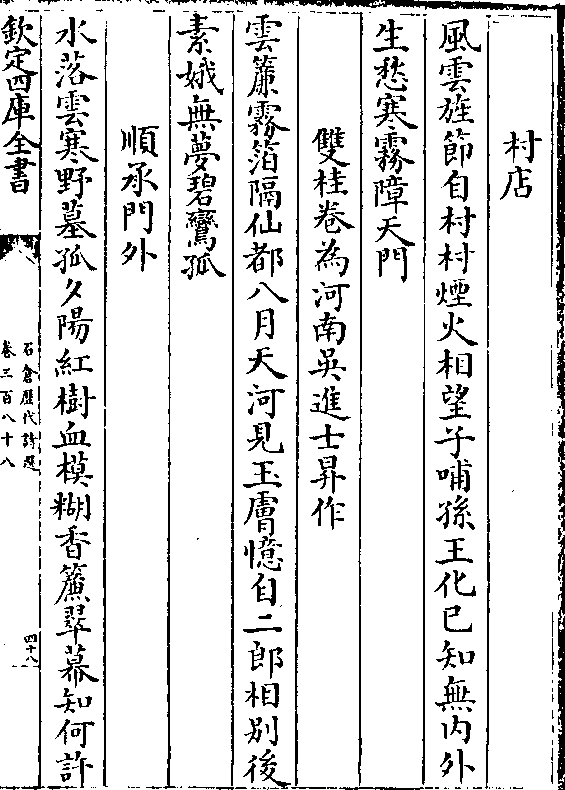 村店
風雲旌節自村村煙火相望子哺孫王化已知無内外
生愁寒霧障天門
雙桂卷為河南吳進士昇作
雲簾霧箔隔仙都八月天河見玉膚憶自二郎相别後
素娥無夢碧鸞孤
順承門外
水落雲寒野墓孤夕陽紅樹血模糊香簾翠幕知何許
欽定四庫全書
石倉歴代詩選
卷三百八十八
四十八